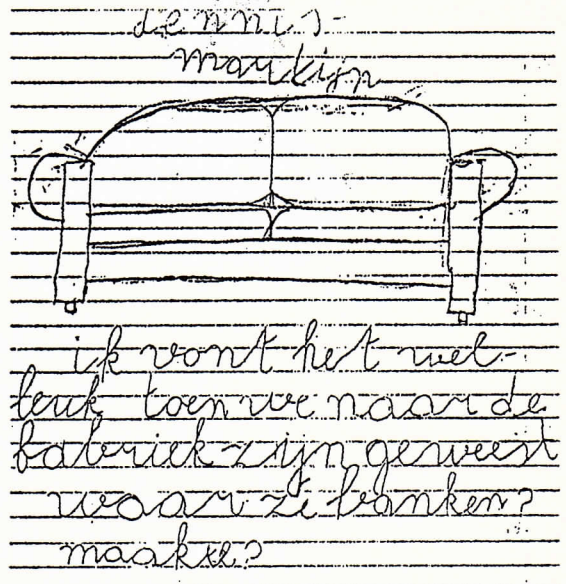 dennis-
markijn
ik vont het wel-
leuk toen we naar de
fabriek zijn geweest
waar ze banken?
maakte?